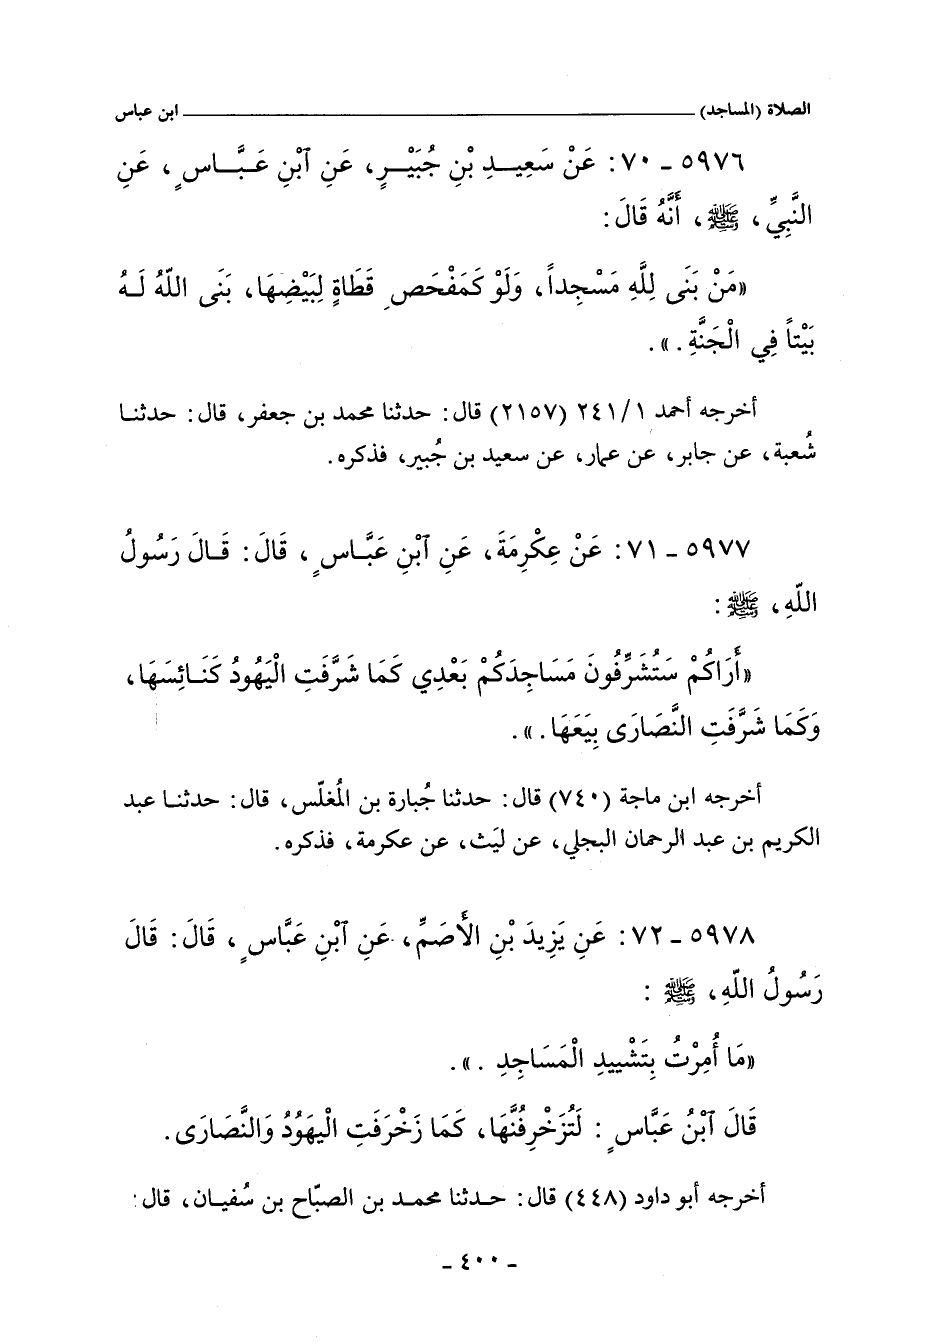 الصلاة (المساجد) ــــــــــ ابن عباس
٥٩٧٦ ـ ٧٠: عَنْ سَعِيدِ بْنِ جُبَيْرٍ، عَنِ ٱبْنِ عَبَّاسٍ، عَنِ
النَّبِيِّ، ﷺ، أَنَّهُ قَالَ:
«مَنْ بَنَى لِلَّهِ مَسْجِداً، وَلَوْ كَمَفْحَصِ قَطَاةٍ لِبَيْضِهَا، بَنَى اللّهُ لَهُ
بَيْتاً فِي الْجَنَّةِ.».
أخرجه أحمد ٢٤١/١ (٢١٥٧) قال: حدثنا محمد بن جعفر، قال: حدثنا
شُعبة، عن جابر، عن عمار، عن سعيد بن جُبير، فذكره.
٥٩٧٧ ـ ٧١: عَنْ عِكْرِمَةَ، عَنِ ٱبْنِ عَبَّاسٍ، قَالَ: قَالَ رَسُولُ
اللّهِ، ﷺ:
«أَرَاكُمْ سَتُشَرِّفُونَ مَسَاجِدَكُمْ بَعْدِي كَمَا شَرَّفَتِ الْيَهُودُ كَنَائِسَهَا،
وَكَمَا شَرَّفَتِ النَّصَارَى بِيَعَهَا.».
أخرجه ابن ماجة (٧٤٠) قال: حدثنا جُبارة بن المُغلّس، قال: حدثنا عبد
الكريم بن عبد الرحمان البجلي، عن ليَث، عن عكرمة، فذكره.
٥٩٧٨ ـ ٧٢: عَنِ يَزِيدَ بْنِ الأَصَمِّ، عَنِ ٱبْنِ عَبَّاسٍ، قَالَ: قَالَ
رَسُولُ اللّهِ، ﷺ:
«مَا أُمِرْتُ بِتَشْيِيدِ الْمَسَاجِدِ.».
قَالَ ٱبْنُ عَبَّاسٍ: لَتُزَخْرِفُنَّهَا، كَمَا زَخْرَفَتِ الْيَهُودُ وَالنَّصَارَى.
أخرجه أبو داود (٤٤٨) قال: حدثنا محمد بن الصبّاح بن سُفيان، قال:
ـ ٤٠٠ ـ